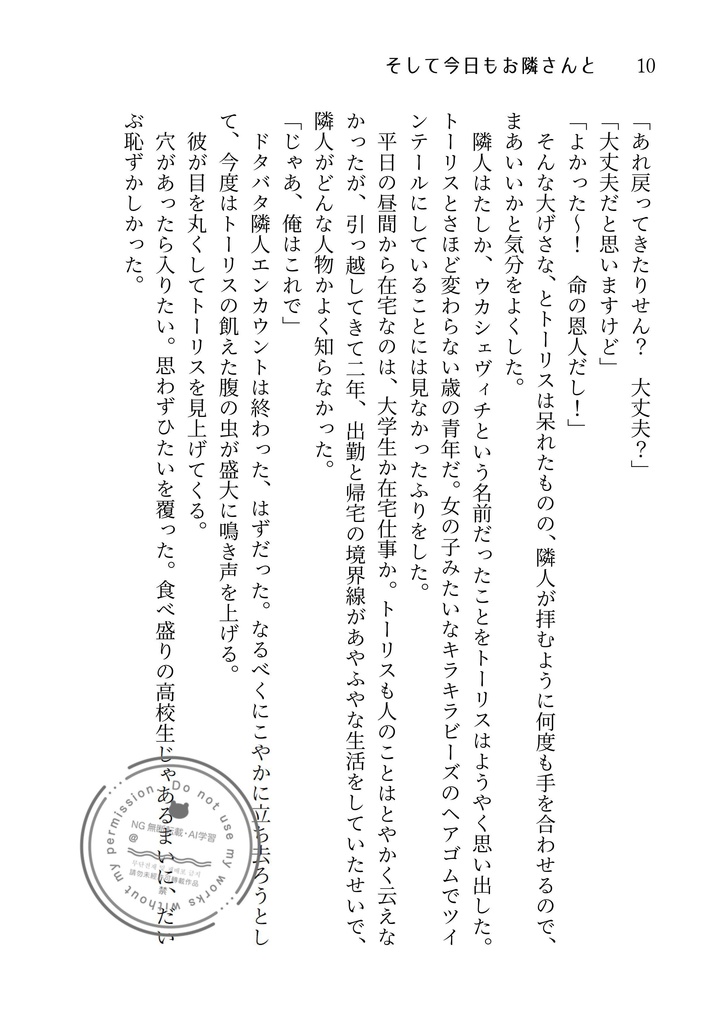 そして今日もお隣さんと　10
「あれ戻ってきたりせん？　大丈夫？」
「大丈夫だと思いますけど」
「よかった～！　命の恩人だし！」
　そんな大げさな、とトーリスは呆れたものの、隣人が拝むように何度も手を合わせるので、
まあいいかと気分をよくした。
　隣人はたしか、ウカシェヴィチという名前だったことをトーリスはようやく思い出した。
トーリスとさほど変わらない歳の青年だ。女の子みたいなキラキラビーズのヘアゴムでツイ
ンテールにしていることには見なかったふりをした。
　平日の昼間から在宅なのは、大学生か在宅仕事か。トーリスも人のことはとやかく云えな
かったが、引っ越してきて二年、出勤と帰宅の境界線があやふやな生活をしていたせいで、
隣人がどんな人物かよく知らなかった。
「じゃあ、俺はこれで」
　ドタバタ隣人エンカウントは終わった、はずだった。なるべくにこやかに立ち去ろうとし
て、今度はトーリスの飢えた腹の虫が盛大に鳴き声を上げる。
　彼が目を丸くしてトーリスを見上げてくる。
　穴があったら入りたい。思わずひたいを覆った。食べ盛りの高校生じゃあるまいに、だい
ぶ恥ずかしかった。
Do not use my works without my permission.
NG 無断転載・AI学習
@
무단전재 및 재배포 금지
請勿未經授權轉載作品
禁